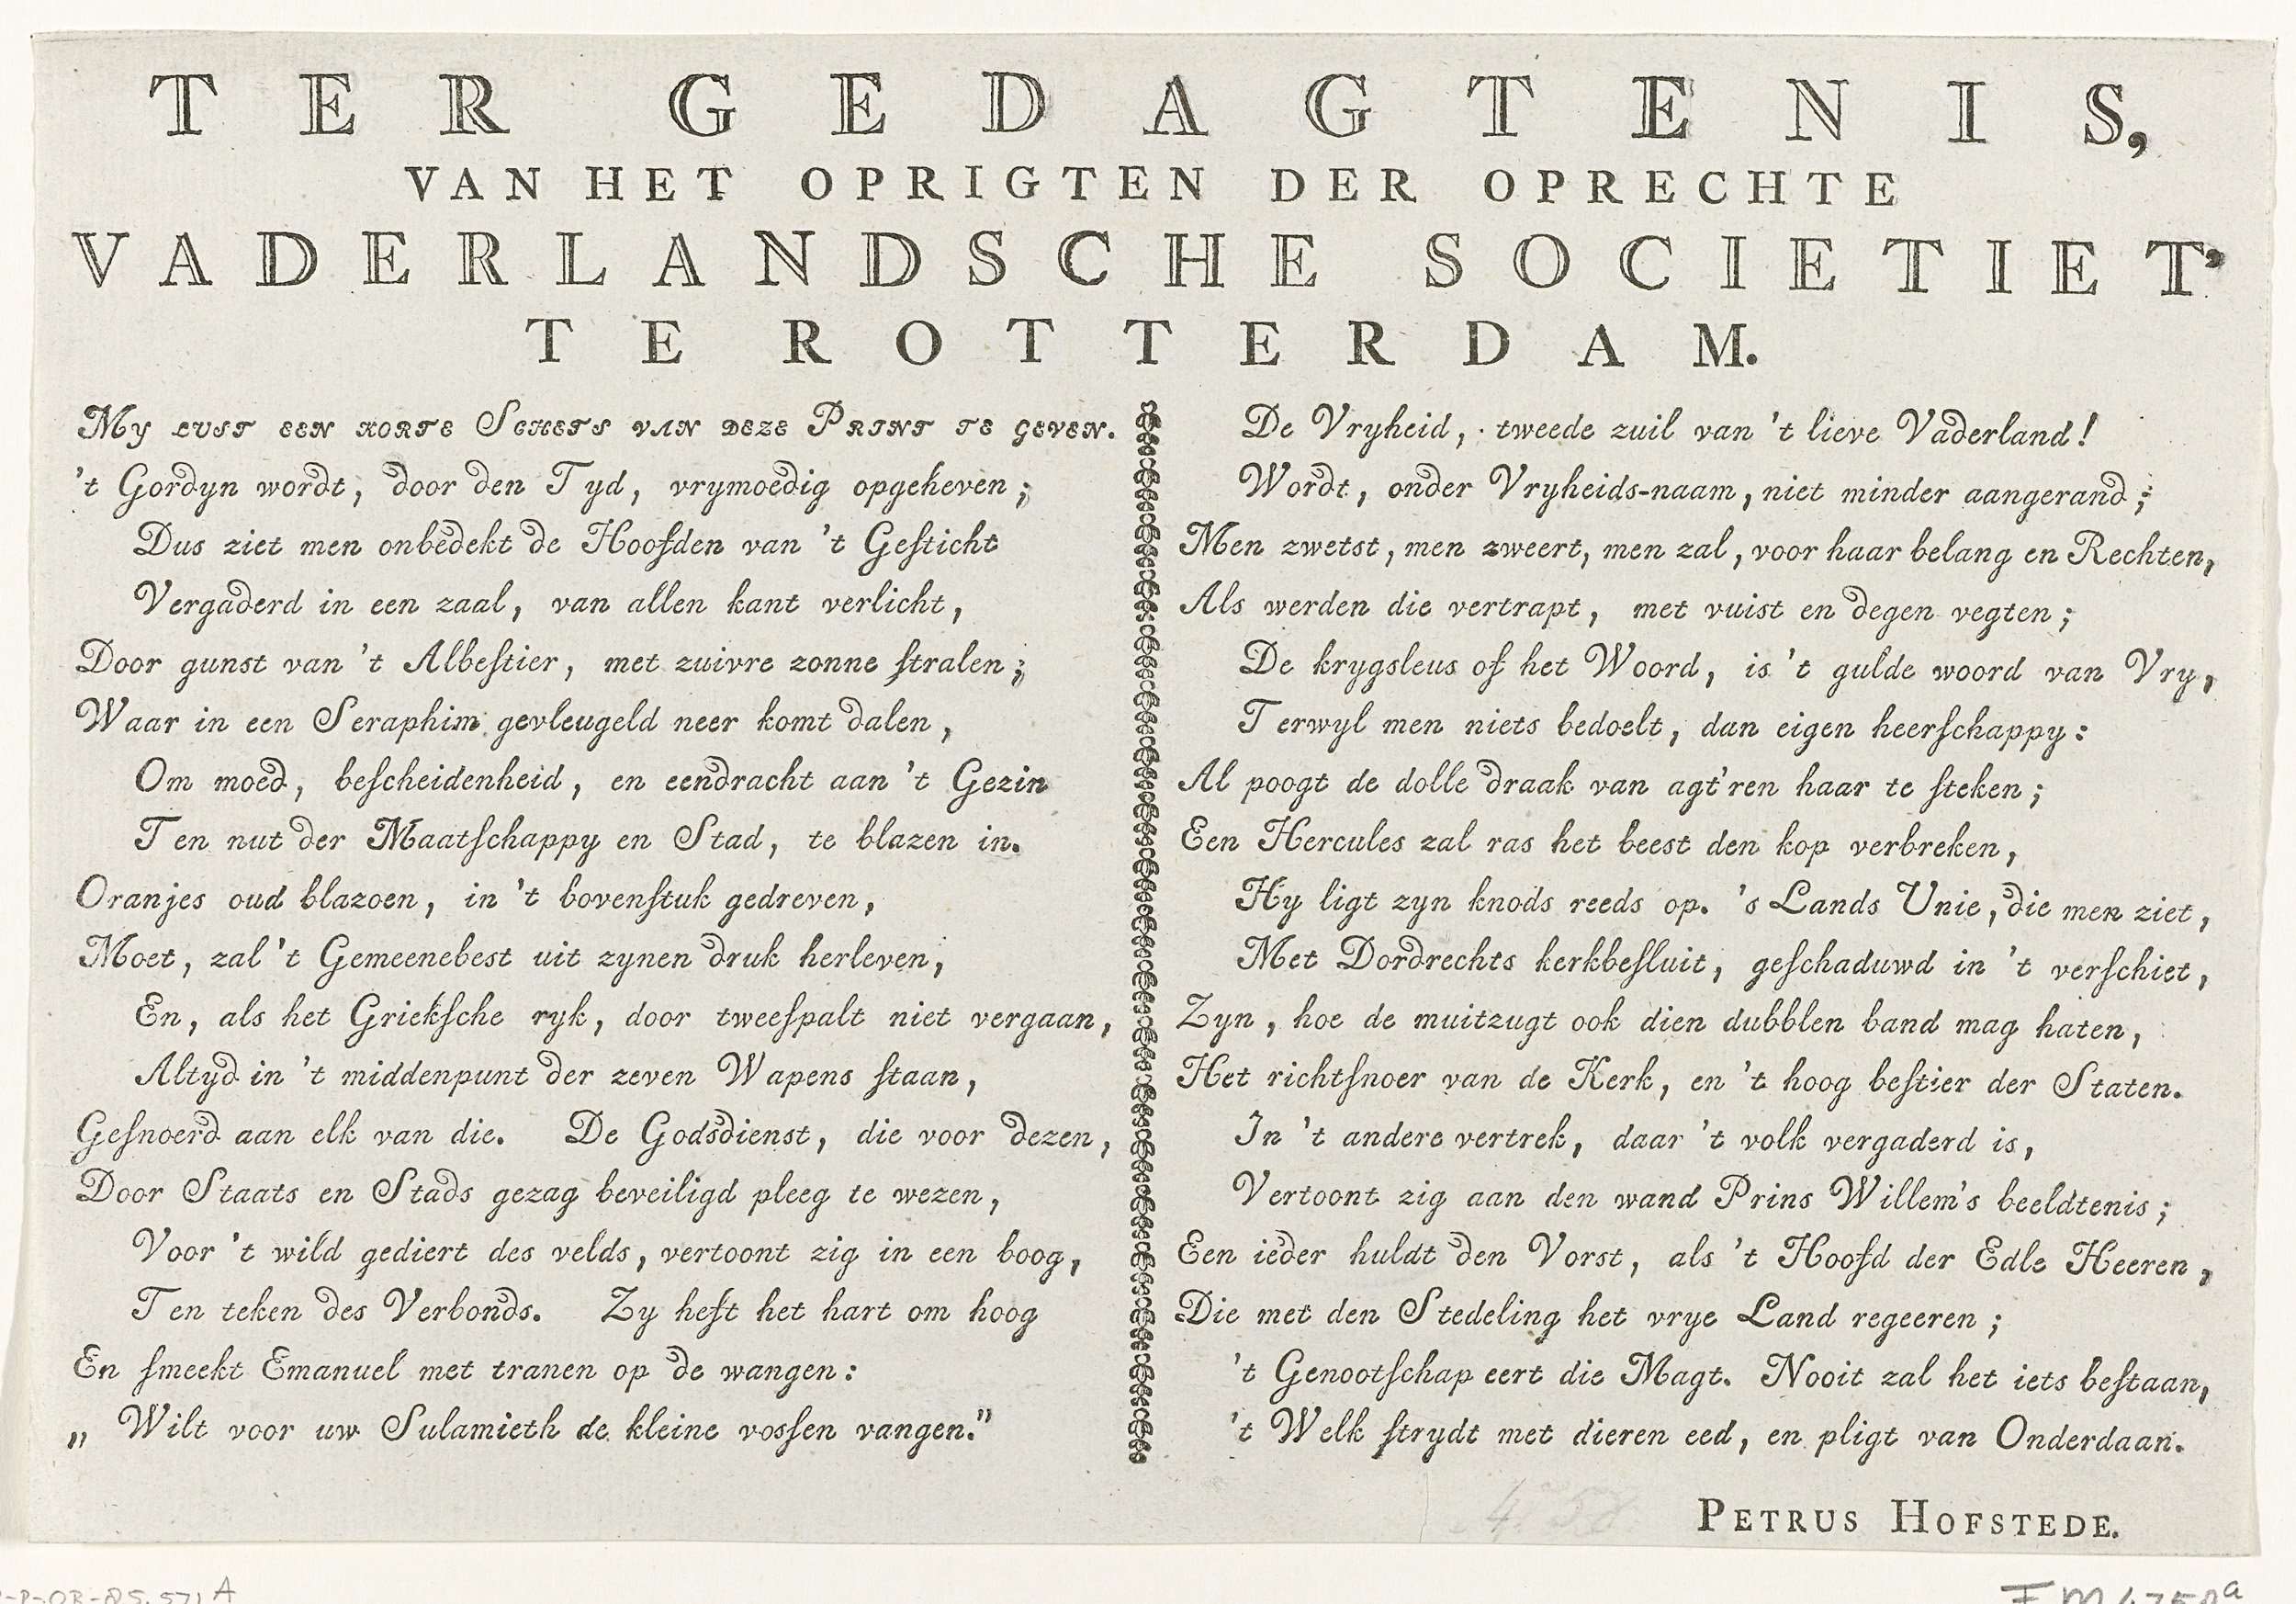 TER GEDAGTENIS,
VAN HET OPRIGTEN DER OPRECHTE
VADERLANDSCHE SOCIETIET,
TE ROTTERDAM.
My lust een korte Schets van deze Print te geven.
't Gordyn wordt, door den Tyd, vrymoedig opgeheven;
Dus ziet men onbedekt de Hoofden van 't Geſticht
Vergaderd in een zaal, van allen kant verlicht,
Door gunst van 't Albeſtier, met zuivre zonne ſtralen;
Waar in een Seraphim gevleugeld neer komt dalen,
Om moed, beſcheidenheid, en eendracht aan 't Gezin
Ten nut der Maatſchappy en Stad, te blazen in.
Oranjes oud blazoen, in 't bovenſtuk gedreven,
Moet, zal 't Gemeenebest uit zynen druk herleven,
En, als het Griekſche ryk, door tweeſpalt niet vergaan,
Altyd in 't middenpunt der zeven Wapens ſtaan,
Geſnoerd aan elk van die. De Godsdienst, die voor dezen,
Door Staats en Stads gezag beveiligd pleeg te wezen,
Voor 't wild gediert des velds, vertoont zig in een boog,
Ten teken des Verbonds. Zy heft het hart om hoog
En ſmeekt Emanuel met tranen op de wangen:
„ Wilt voor uw Sulamieth de kleine vosſen vangen."
De Vryheid, tweede zuil van 't lieve Vaderland!
Wordt, onder Vryheids-naam, niet minder aangerand;
Men zwetst, men zweert, men zal, voor haar belang en Rechten,
Als werden die vertrapt, met vuist en degen vegten;
De krygsleus of het Woord, is 't gulde woord van Vry,
Terwyl men niets bedoelt, dan eigen heerſchappy:
Al poogt de dolle draak van agt'ren haar te ſteken;
Een Hercules zal ras het beest den kop verbreken,
Hy ligt zyn knods reeds op. 's Lands Unie, die men ziet,
Met Dordrechts kerkbeſluit, geſchaduwd in 't verſchiet,
Zyn, hoe de muitzugt ook dien dubblen band mag haten,
Het richtſnoer van de Kerk, en 't hoog beſtier der Staten.
In 't andere vertrek, daar 't volk vergaderd is,
Vertoont zig aan den wand Prins Willem's beeldtenis;
Een ieder huldt den Vorst, als 't Hoofd der Edle Heeren,
Die met den Stedeling het vrye Land regeeren;
't Genootſchap eert die Magt. Nooit zal het iets beſtaan,
't Welk ſtrydt met dieren eed, en pligt van Onderdaan.
PETRUS HOFSTEDE.